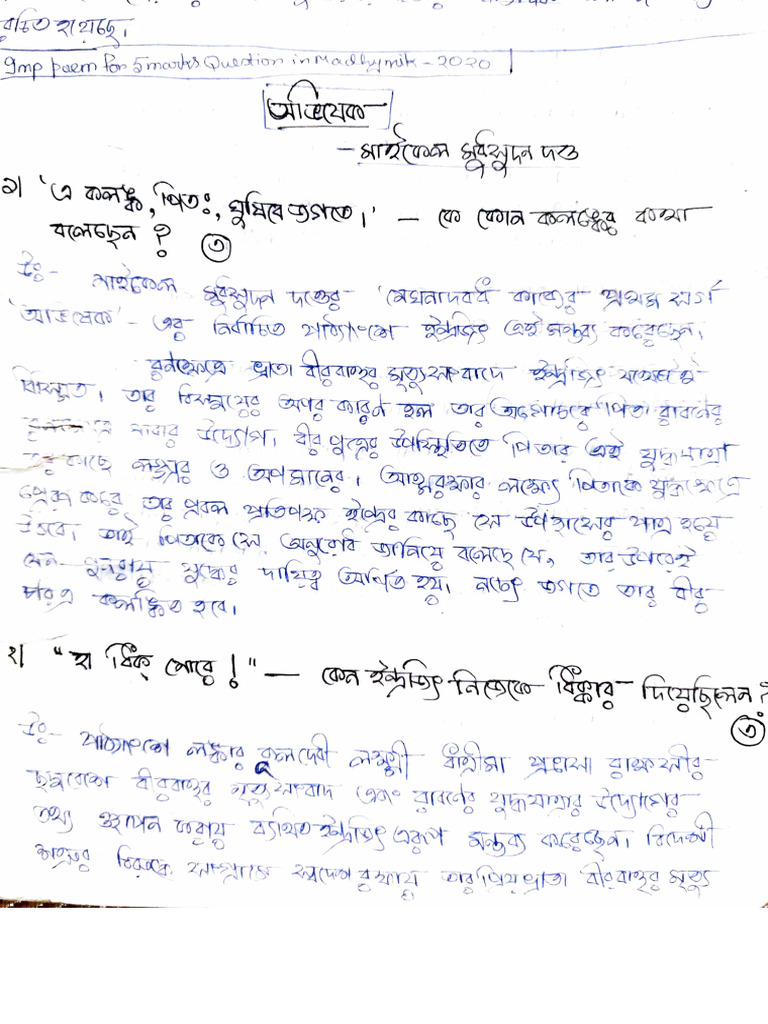 রচিত হয়েছে।
Imp poem for 5 marks Question in Madhymik - 2020
অভিষেক
- মাইকেল মধুসূদন দত্ত
১। 'এ কলঙ্ক, পিতঃ, ঘুষিবে জগতে।' – কে কোন কলঙ্কের কথা
বলেছেন? ৩
উঃ- মাইকেল মধুসূদন দত্তের 'মেঘনাদবধ কাব্যের প্রথম সর্গ
'অভিষেক' - এর নির্বাচিত পাঠ্যাংশে ইন্দ্রজিৎ এই মন্তব্য করেছেন।
রণক্ষেত্রে ভ্রাতা বীরবাহুর মৃত্যুসংবাদে ইন্দ্রজিৎ
বিস্মিত। তার বিস্ময়ের অপর কারণ হল তার অগোচরে পিতা রাবণের
যাবার উদ্যোগ। বীর পুত্রের উপস্থিতিতে পিতার এই যুদ্ধযাত্রা
তার কাছে লজ্জার ও অপমানের। আত্মরক্ষার লক্ষ্যে পিতাকে যুদ্ধক্ষেত্রে
প্রেরণ করলে তার প্রবল প্রতিপক্ষ ইন্দ্রের কাছে সে উপহাসের পাত্র হয়ে
উঠবে। তাই পিতাকে সে অনুরোধ জানিয়ে বলেছে যে, তার উপরেই
যেন পুনরায় যুদ্ধের দায়িত্ব অর্পিত হয়। নচেৎ জগতে তার বীর
চরিত্র কলঙ্কিত হবে।
২। "হা ধিক্ মোরে!" – কেন ইন্দ্রজিৎ নিজেকে ধিক্কার দিয়েছিলেন? ৩
উঃ- পাঠ্যাংশে লঙ্কার কুলদেবী লক্ষ্মী ধাত্রীমা প্রভাষা রাক্ষসীর
ছদ্মবেশে বীরবাহুর মৃত্যু সংবাদ এবং রাবণের যুদ্ধযাত্রার উদ্যোগের
তথ্য জ্ঞাপন করায় ব্যথিত ইন্দ্রজিৎ এরূপ মন্তব্য করেছেন। বিদেশী
শত্রুর বিরুদ্ধে সংগ্রামে স্বদেশ রক্ষায় তার প্রিয় ভ্রাতা বীরবাহুর মৃত্যু